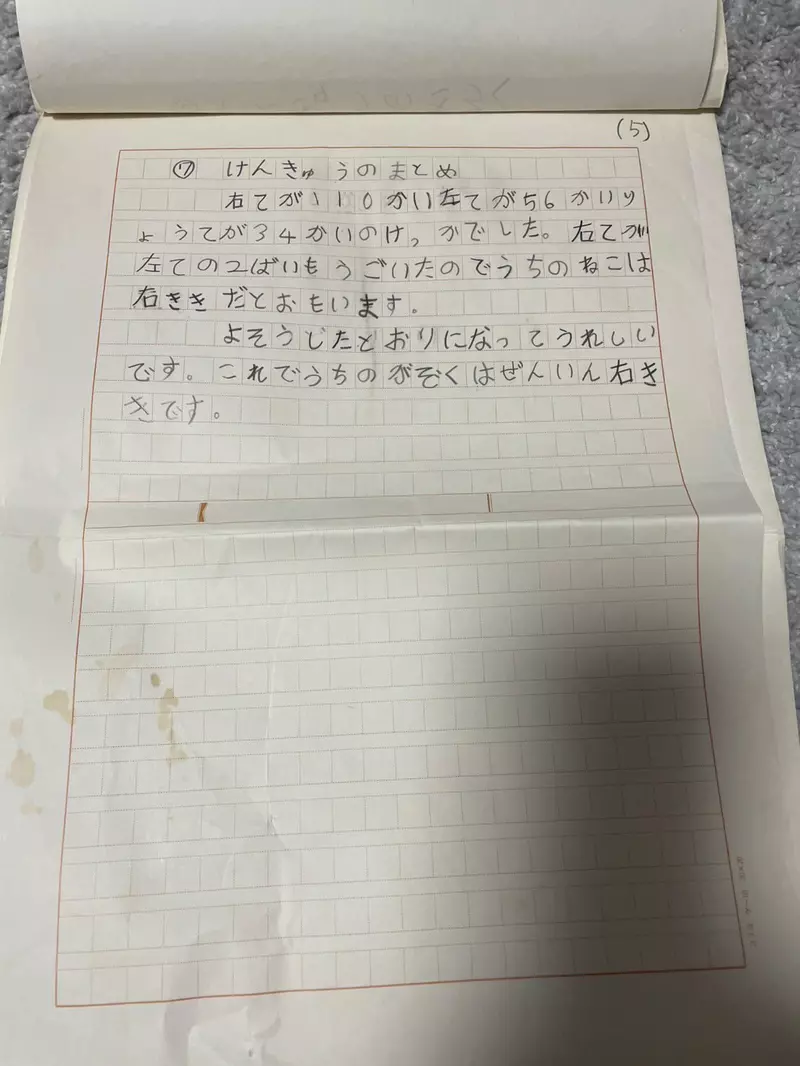 (5)
⑦ けんきゅうのまとめ
右てが110かい左てが56かいり
ょうてが34かいのけっかでした。右てが
左ての2ばいもうごいたのでうちのねこは
右ききだとおもいます。
よそうしたとおりになってうれしい
です。これでうちのかぞくはぜんいん右き
きです。